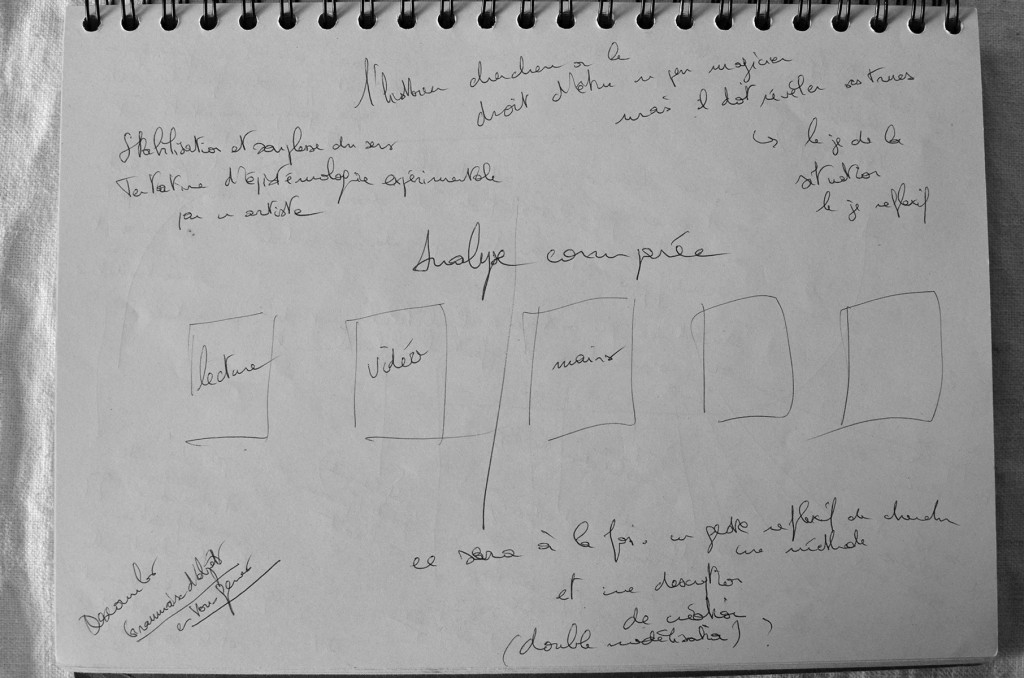 l'historien chercheur a le
droit d'être un peu magicien
mais il doit révéler ses trucs
↳ le je de la
situation
le je réflexif
Stabilisation et souplesse du sens
Tentative d'épistémologie expérimentale
par un artiste
Analyse comparée
lecture
vidéo
mains
ce sera à la fois un geste réflexif du chercheur
une méthode
et une description
de création
(double modélisation) ?
Grammaire d'objet